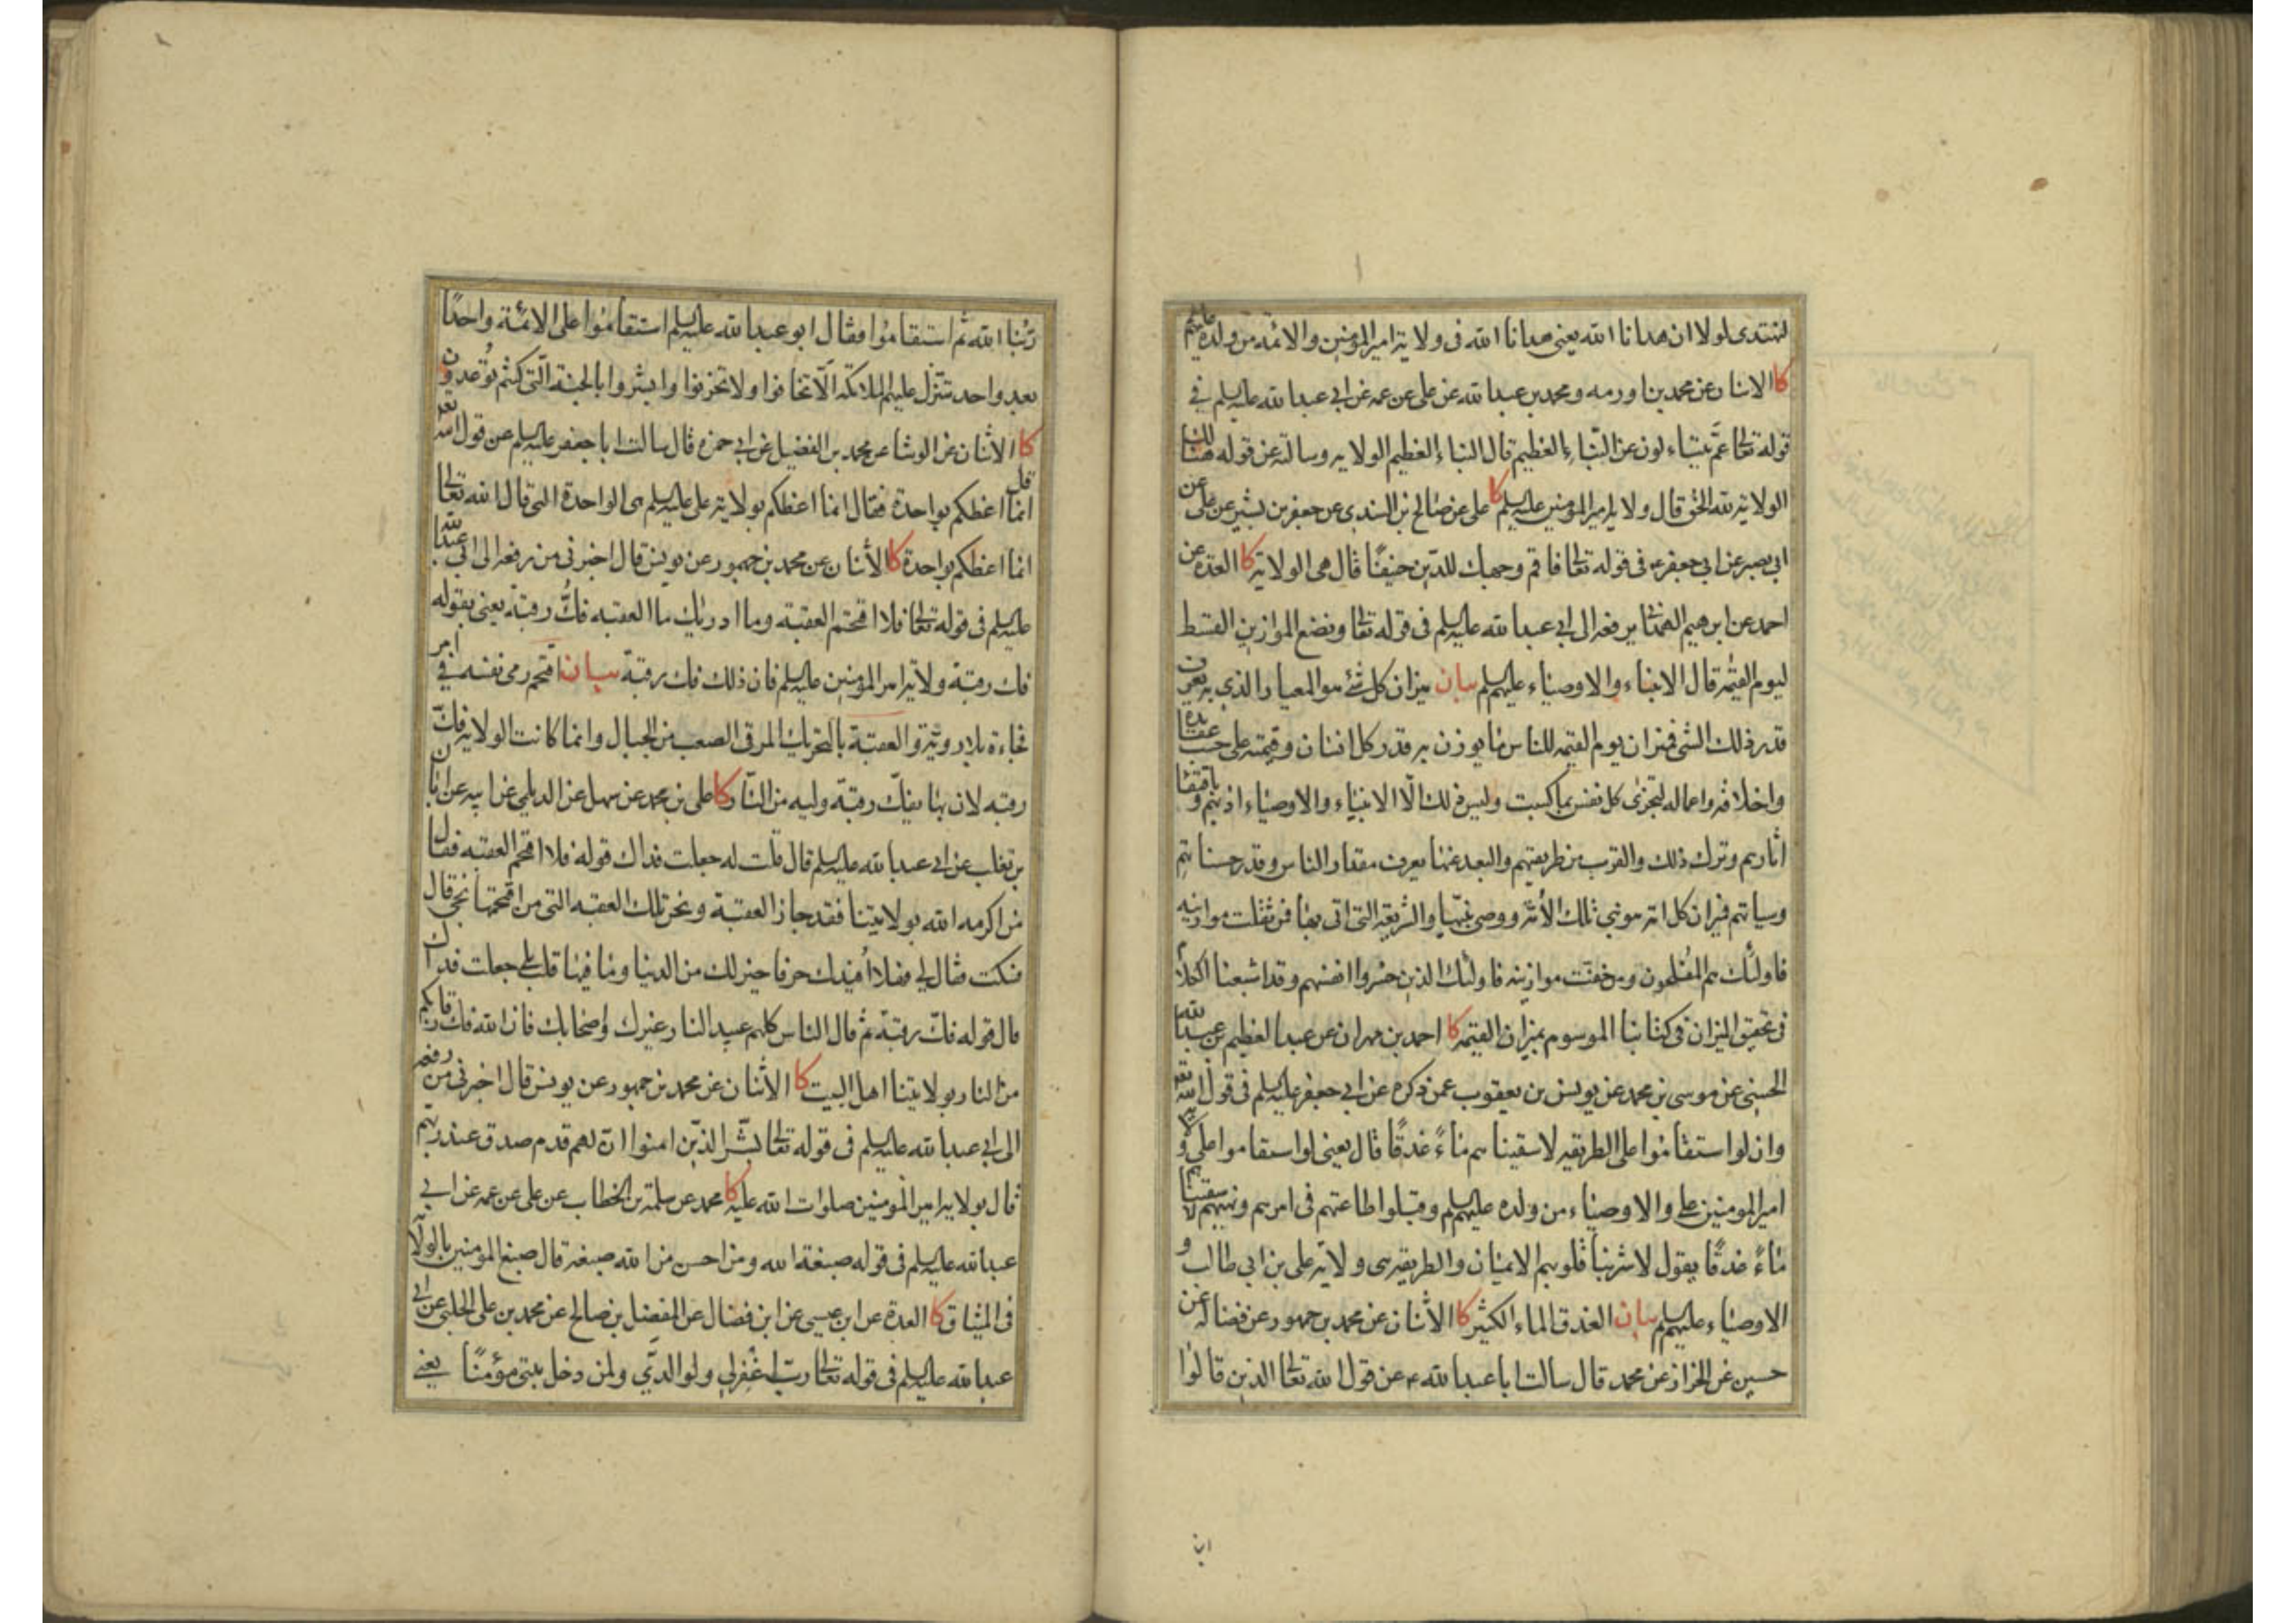 لنهتدى لولا ان هدانا الله يعنى هدانا الله فى ولاية امير المؤمنين والائمة من ولده عليهم
كا الاثنان عن محمد بن اورمه ومحمد بن عبد الله عن على عن عمه عن ابى عبد الله عليه السلم فى
قوله تعالى عم يتساءلون عن النباء العظيم قال النباء العظيم الولاية وسالته عن قوله هنالك
الولاية لله الحق قال ولاية امير المؤمنين عليه السلم كا على عن صالح بن السندى عن جعفر بن بشير عن على عن
ابى بصير عن ابى جعفر ع فى قوله تعالى فاقم وجهك للدين حنيفًا قال هى الولاية كا العدة عن
احمد عن ابرهيم الهمدانى يرفعه الى ابى عبد الله عليه السلم فى قوله تعالى ونضع الموازين القسط
ليوم القيمة قال الانبياء والاوصياء عليهم السلم بيان ميزان كل شئ هو المعيار الذى به يعرف
قدر ذلك الشى فميزان يوم القيمة للناس ما يوزن به قدر كل انسان وقيمته على حسب عقائده
واخلاقه واعماله لتجزى كل نفس بما كسبت وليس ذلك الّا الانبياء والاوصياء اذ بهم وباقتفاء
اثارهم وترك ذلك والقرب من طريقتهم والبعد عنها يعرف مقدار الناس وقدر حسناتهم
وسياتهم فميزان كل امة هو نبى تلك الأمّة ووصى نبيّها والشريعة التى اتى بها فمن ثقلت موازينه
فاولئك هم المفلحون ومن خفّت موازينه فاولئك الذين خسروا انفسهم وقد اشبعنا الكلام
فى تحقيق الميزان فى كتابنا الموسوم بميزان القيمة كا احمد بن مهران عن عبد العظيم بن عبد الله
الحسنى عن موسى بن محمد عن يونس بن يعقوب عمن ذكره عن ابى جعفر عليه السلم فى قول الله تعه
وان لو استقاموا على الطريقة لاسقيناهم ماءً غدقًا قال يعنى لو استقاموا على ولاية
امير المؤمنين على والاوصياء من ولده عليهم السلم وقبلوا طاعتهم فى امرهم ونهيهم لاسقيناهم
ماءً غدقًا يقول لاشربنا قلوبهم الايمان والطريقة هى ولاية على بن ابى طالب و
الاوصياء عليهم السلم بيان الغدق الماء الكثير كا الأثنان عن محمد بن جمهور عن فضالة عن
حسين عن الخزاز عن محمد قال سالت ابا عبد الله ع عن قول الله تعالى الذين قالوا
ربّنا الله ثم استقاموا فقال ابو عبد الله عليه السلم استقاموا على الائمة واحدًا
بعد واحد تتنزّل عليهم الملائكة الّا تخافوا ولا تحزنوا وابشروا بالجنة الّتى كنتم توعدون
كا الأثنان عن الوشا عن محمد بن الفضيل عن ابى حمزه قال سالت ابا جعفر عليه السلم عن قول الله تعه
قل انما اعظكم بواحدة فقال انما اعظكم بولاية على عليه السلم هى الواحدة التى قال الله تعالى
انما اعظكم بواحدة كا الأثنان عن محمد بن جمهور عن يونس قال اخبرنى من رفعه الى ابى عبد الله
عليه السلم فى قوله تعالى فلا اقتحم العقبة وما ادريك ما العقبه فكّ رقبة يعنى بقوله
فك رقبة ولاية امير المؤمنين عليه السلم فان ذلك فك رقبة بيان اقتحم رمى نفسه فى امر
فجاءة بلا روية والعقبة بالتحريك المرقى الصعب من الجبال وانما كانت الولاية فكّ
رقبه لان بها يفكّ رقبة وليه من النّار كا على بن محمد عن سهل عن الديلمى عن ابيه عن ابان
بن تغلب عن ابى عبد الله عليه السلم قال قلت له جعلت فداك قوله فلا اقتحم العقبه فقال
من اكرمه الله بولايتنا فقد جاز العقبة ونحن تلك العقبه التى من اقتحمها نجى قال
فسكت فقال لى فهلا افيدك حرفا خير لك من الدنيا وما فيها قلت بلى جعلت فداك
قال قوله فكّ رقبة ثم قال الناس كلهم عبيد النار غيرك واصحابك فان الله فك رقابكم
من النار بولايتنا اهل البيت كا الأثنان عن محمد بن جمهور عن يونس قال اخبرنى من رفعه
الى ابى عبد الله عليه السلم فى قوله تعالى بشّر الذين امنوا ان لهم قدم صدق عند ربهم
قال بولاية امير المؤمنين صلوات الله عليه كا محمد عن سلمة بن الخطاب عن على عن عمه عن ابى
عبد الله عليه السلم فى قوله صبغة الله ومن احسن من الله صبغة قال صبغ المومنين بالولاية
فى الميثاق كا العدة عن ابن عيسى عن ابن فضال عن المفضل بن صالح عن محمد بن على الحلبى عن ابى
عبد الله عليه السلم فى قوله تعالى رب اغفر لى ولوالدّي ولمن دخل بيتى مؤمنًا يعنى